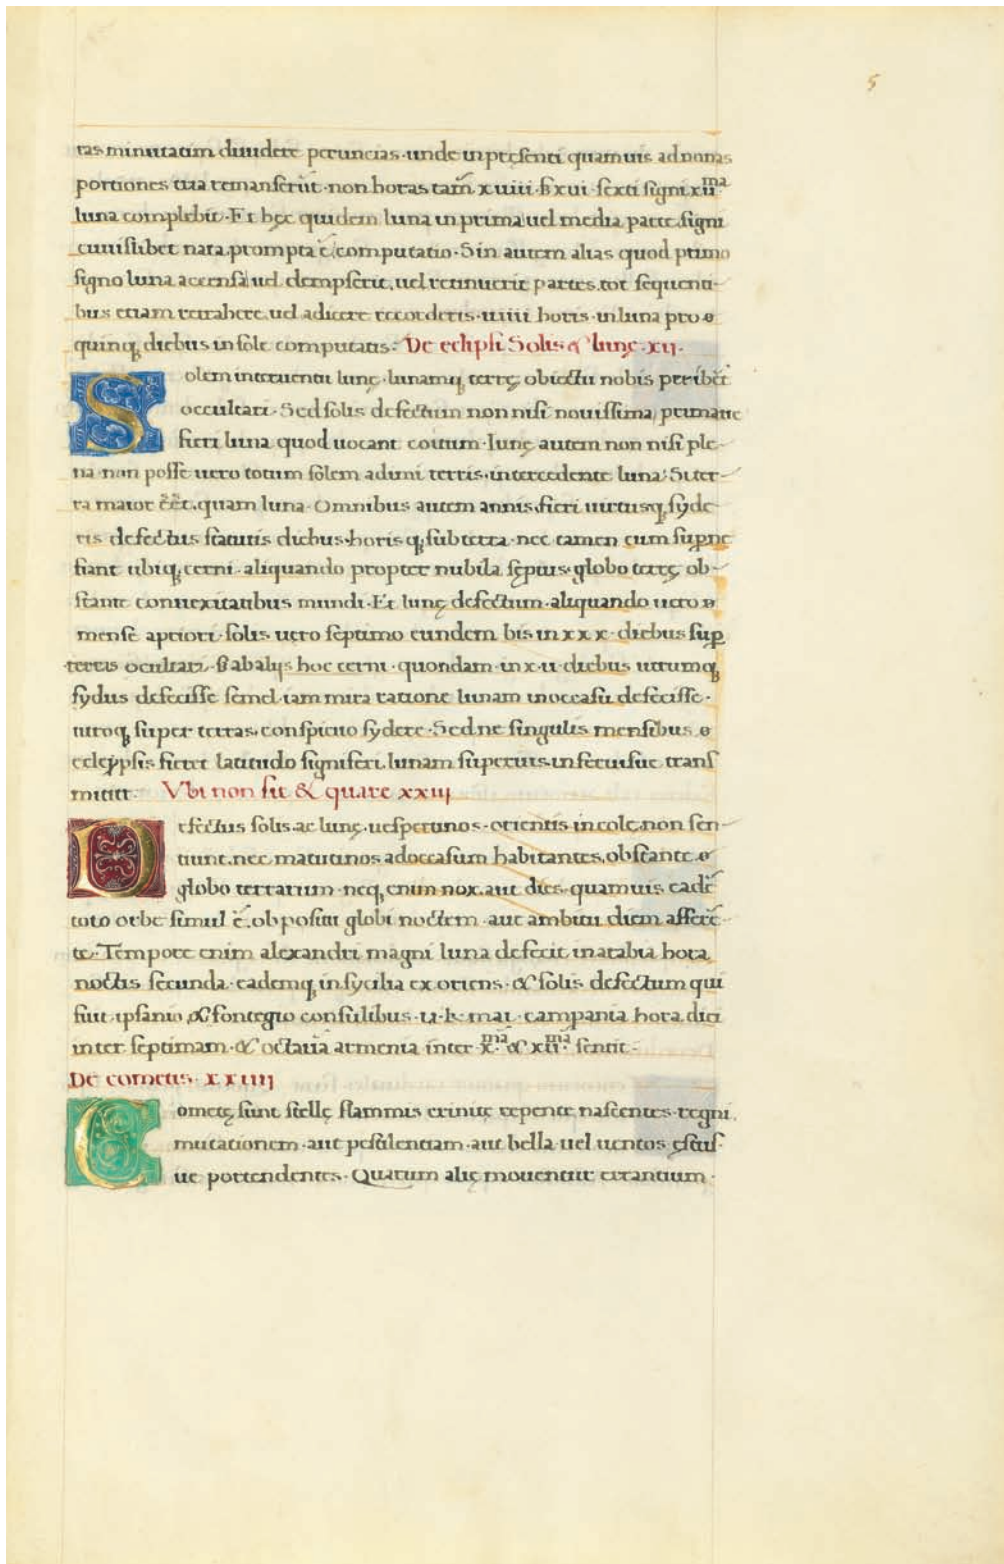 5
ras minutatim diuidere per uncias · unde in pręsenti quamuis ad nonas
portiones tua remanserūt · non horas tam̄ xuiiii · s̄ xui · sexti signi xiiᵐᵃ
luna complebit · Et hęc quidem luna in prima uel media parte signi
cuiuslibet nata, prompta ē computatio · Sin autem alias quod primo
signo luna accensa uel dempserit, uel retinuerit partes, tot sequenti-
bus etiam retrahere, uel adicere recorderis · uiiii horis · in luna pro
quinq; diebus in sole computatis : De eclipsi Solis & lunę · xxii ·
Solem interuentu lunę · lunamq; terrę obiectu nobis peribēt
occultari · Sed solis defectum non nisi nouissima, primaue
fieri luna quod uocant coitum · lunę autem non nisi ple-
na non posse uero totum solem adimi terris · intercedente luna · Si ter-
ra maior ēēt, quam luna · Omnibus autem annis, fieri utriusq; syde-
ris defectus statutis diebus · horis q; sub terra · nec tamen cum supne
fiant ubiq; cerni · aliquando propter nubila sępius · globo terrę ob-
stante conuexitatibus mundi · Et lunę defectum · aliquando uero
mense a priori · solis uero septimo eundem bis in xxx · diebus sup
terris ocultari · s̄ ab alijs hoc cerni · quondam in x · u diebus utrumq;
sydus defecisse semel iam mira ratione lunam in occasu defecisse ·
utroq; super terras, conspicuo sydere · Sed ne singulis mensibus
eclypsis fieret latitudo signiferi, lunam superius inferiusue trans
mittit · Vbi non sit & quare xxiii
Defectus solis · ac lunę · uespertinos · orientis incolę, non sen-
tiunt, nec matutinos ad occasum habitantes, obstante
globo terrarum · neq; enim nox, aut dies · quamuis eadē
toto orbe simul ē · ob positu globi noctem · aut ambitu diem afferē-
te · Tempore enim alexandri magni luna defecit in arabia hora,
noctis secunda · eademq; in sycilia exoriens · & solis defectum qui
fuit ipsanio & fontegio consulibus · u · k · mai · campania hora, diei
inter septimam · & octaua armenia inter xᵐᵃ · & xiiᵐᵃ · sentit ·
De cometis · xxiiii
Cometę sunt stellę flammis crinitę repente nascentes · regni
mutationem · aut pestilentiam · aut bella uel uentos ęstus-
ue portendentes · Quarum alię mouentur errantium ·